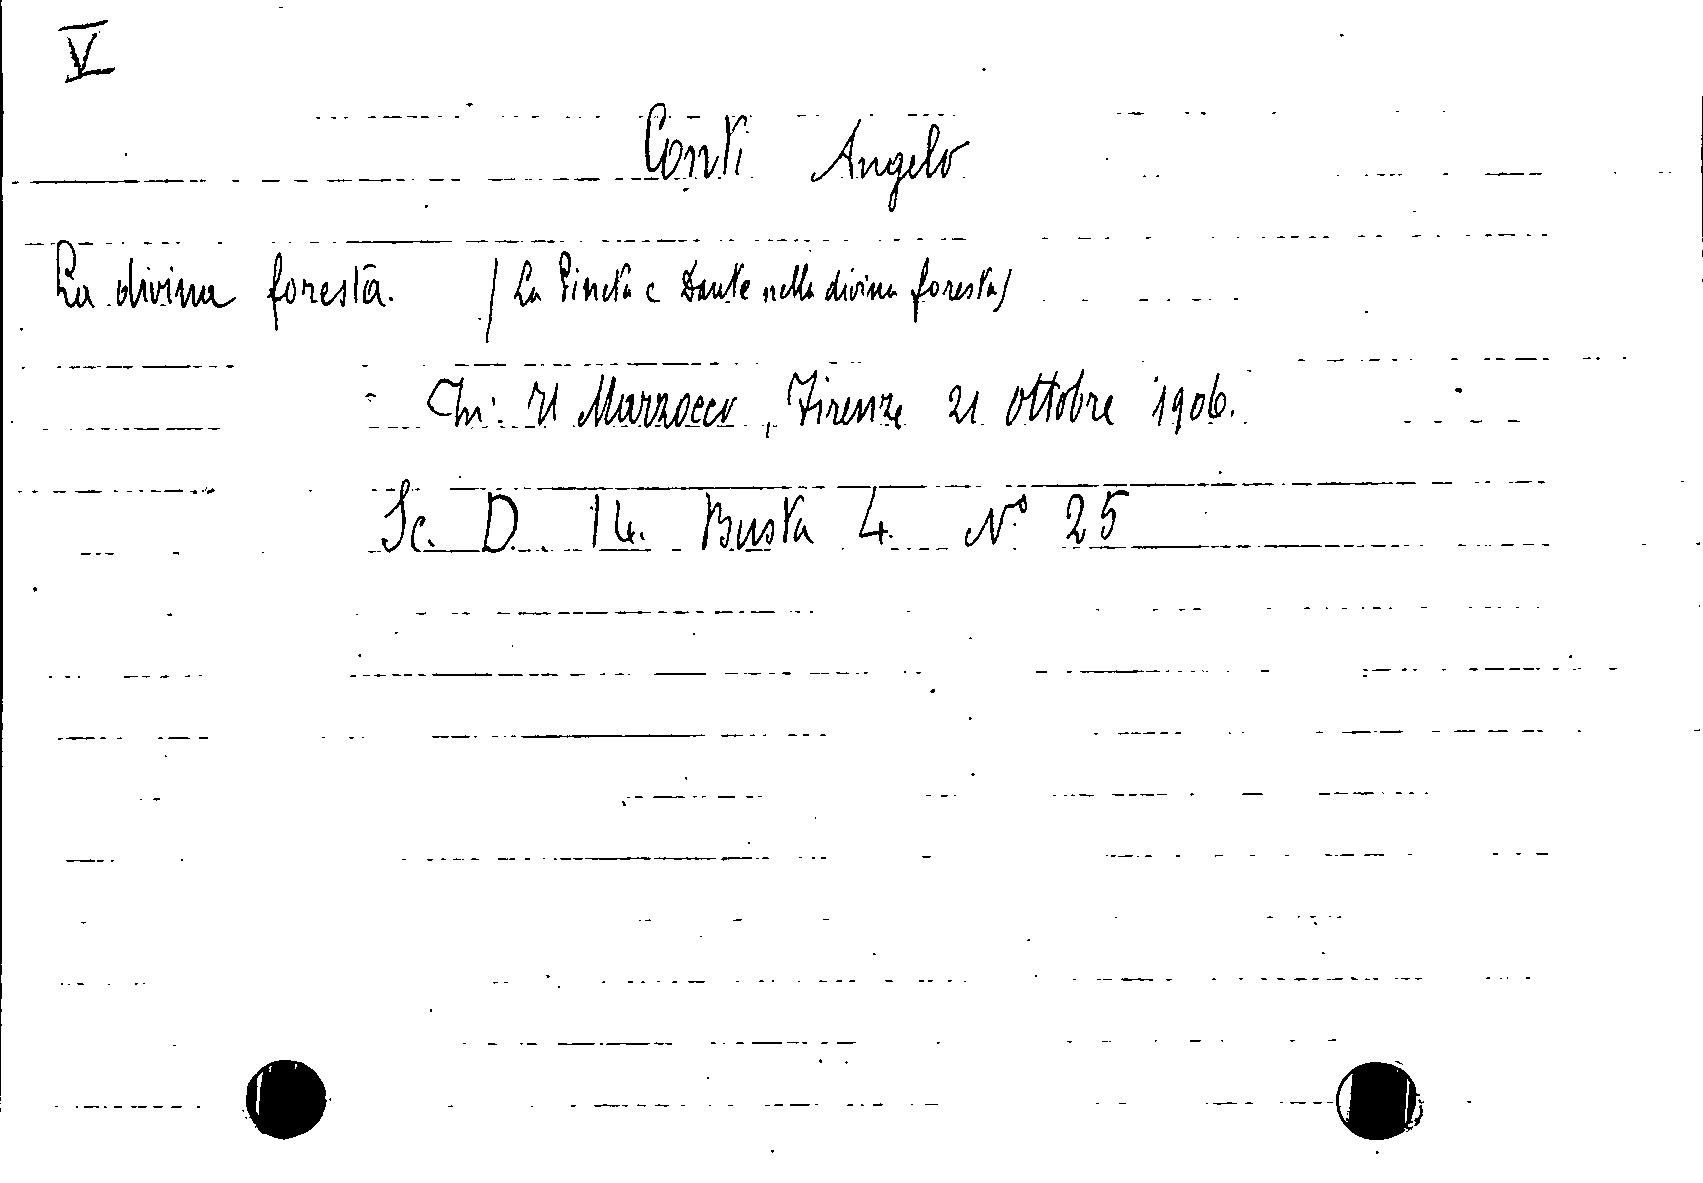 V
Conti Angelo
La divina foresta. / La Pineta e Dante nella divina foresta/
In: Il Marzocco, Firenze 21 ottobre 1906.
Sc. D. 14. Busta 4. N.° 25